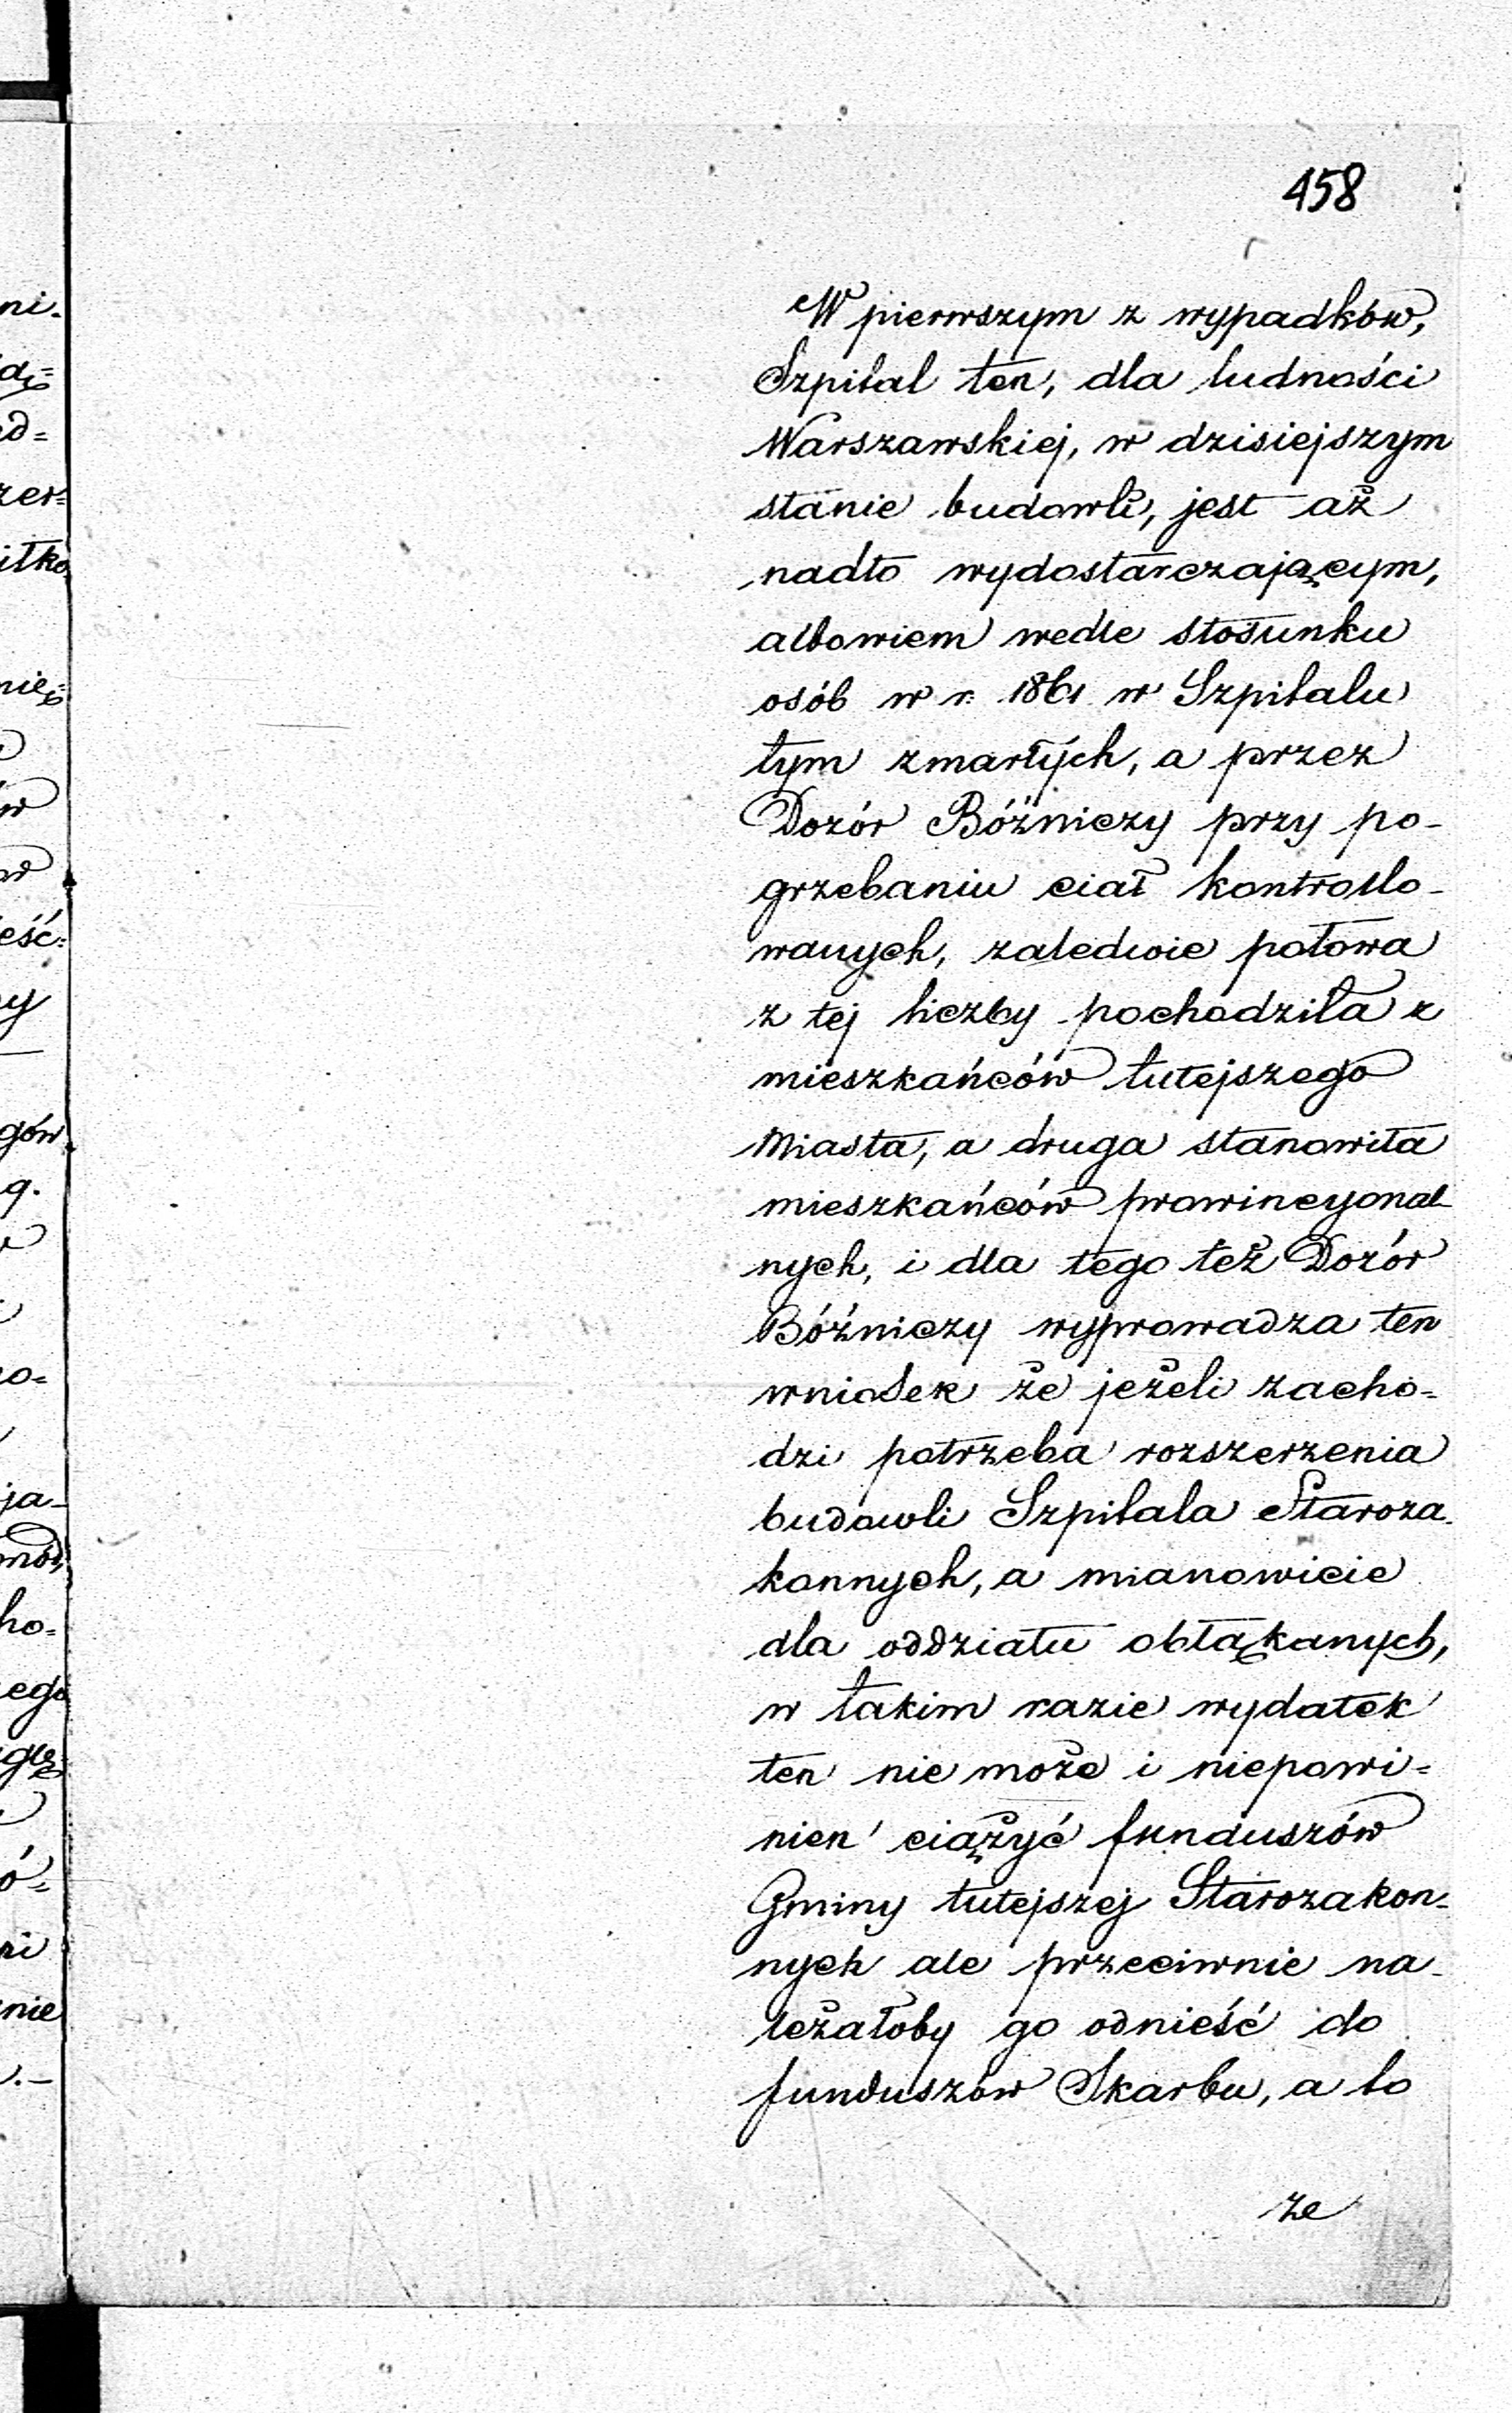 458
W pierwszym z wypadków,
Szpital ten, dla ludności
Warszawskiej, w dzisiejszym
stanie budowli, jest aż
nadto wydostarczającym,
albowiem wedle stosunku
osób w r. 1861 w Szpitalu
tym zmarłych, a przez
Dozór Bóźniczy przy po-
grzebaniu ciał kontrollo-
wanych, zaledwie połowa
z tej liczby pochodziła z
mieszkańców tutejszego
Miasta, a druga stanowiła
mieszkańców prowincyonal-
nych, i dla tego też Dozór
Bóźniczy wyprowadza ten
wniosek że jeżeli zacho=
dzi potrzeba rozszerzenia
budowli Szpitala Staroza-
konnych, a mianowicie
dla oddziału obłąkanych,
w takim razie wydatek
ten nie może i niepowi=
nien ciążyć funduszów
Gminy tutejszej Starozakon-
nych ale przeciwnie na-
leżałoby go odnieść do
funduszów Skarbu, a to
że